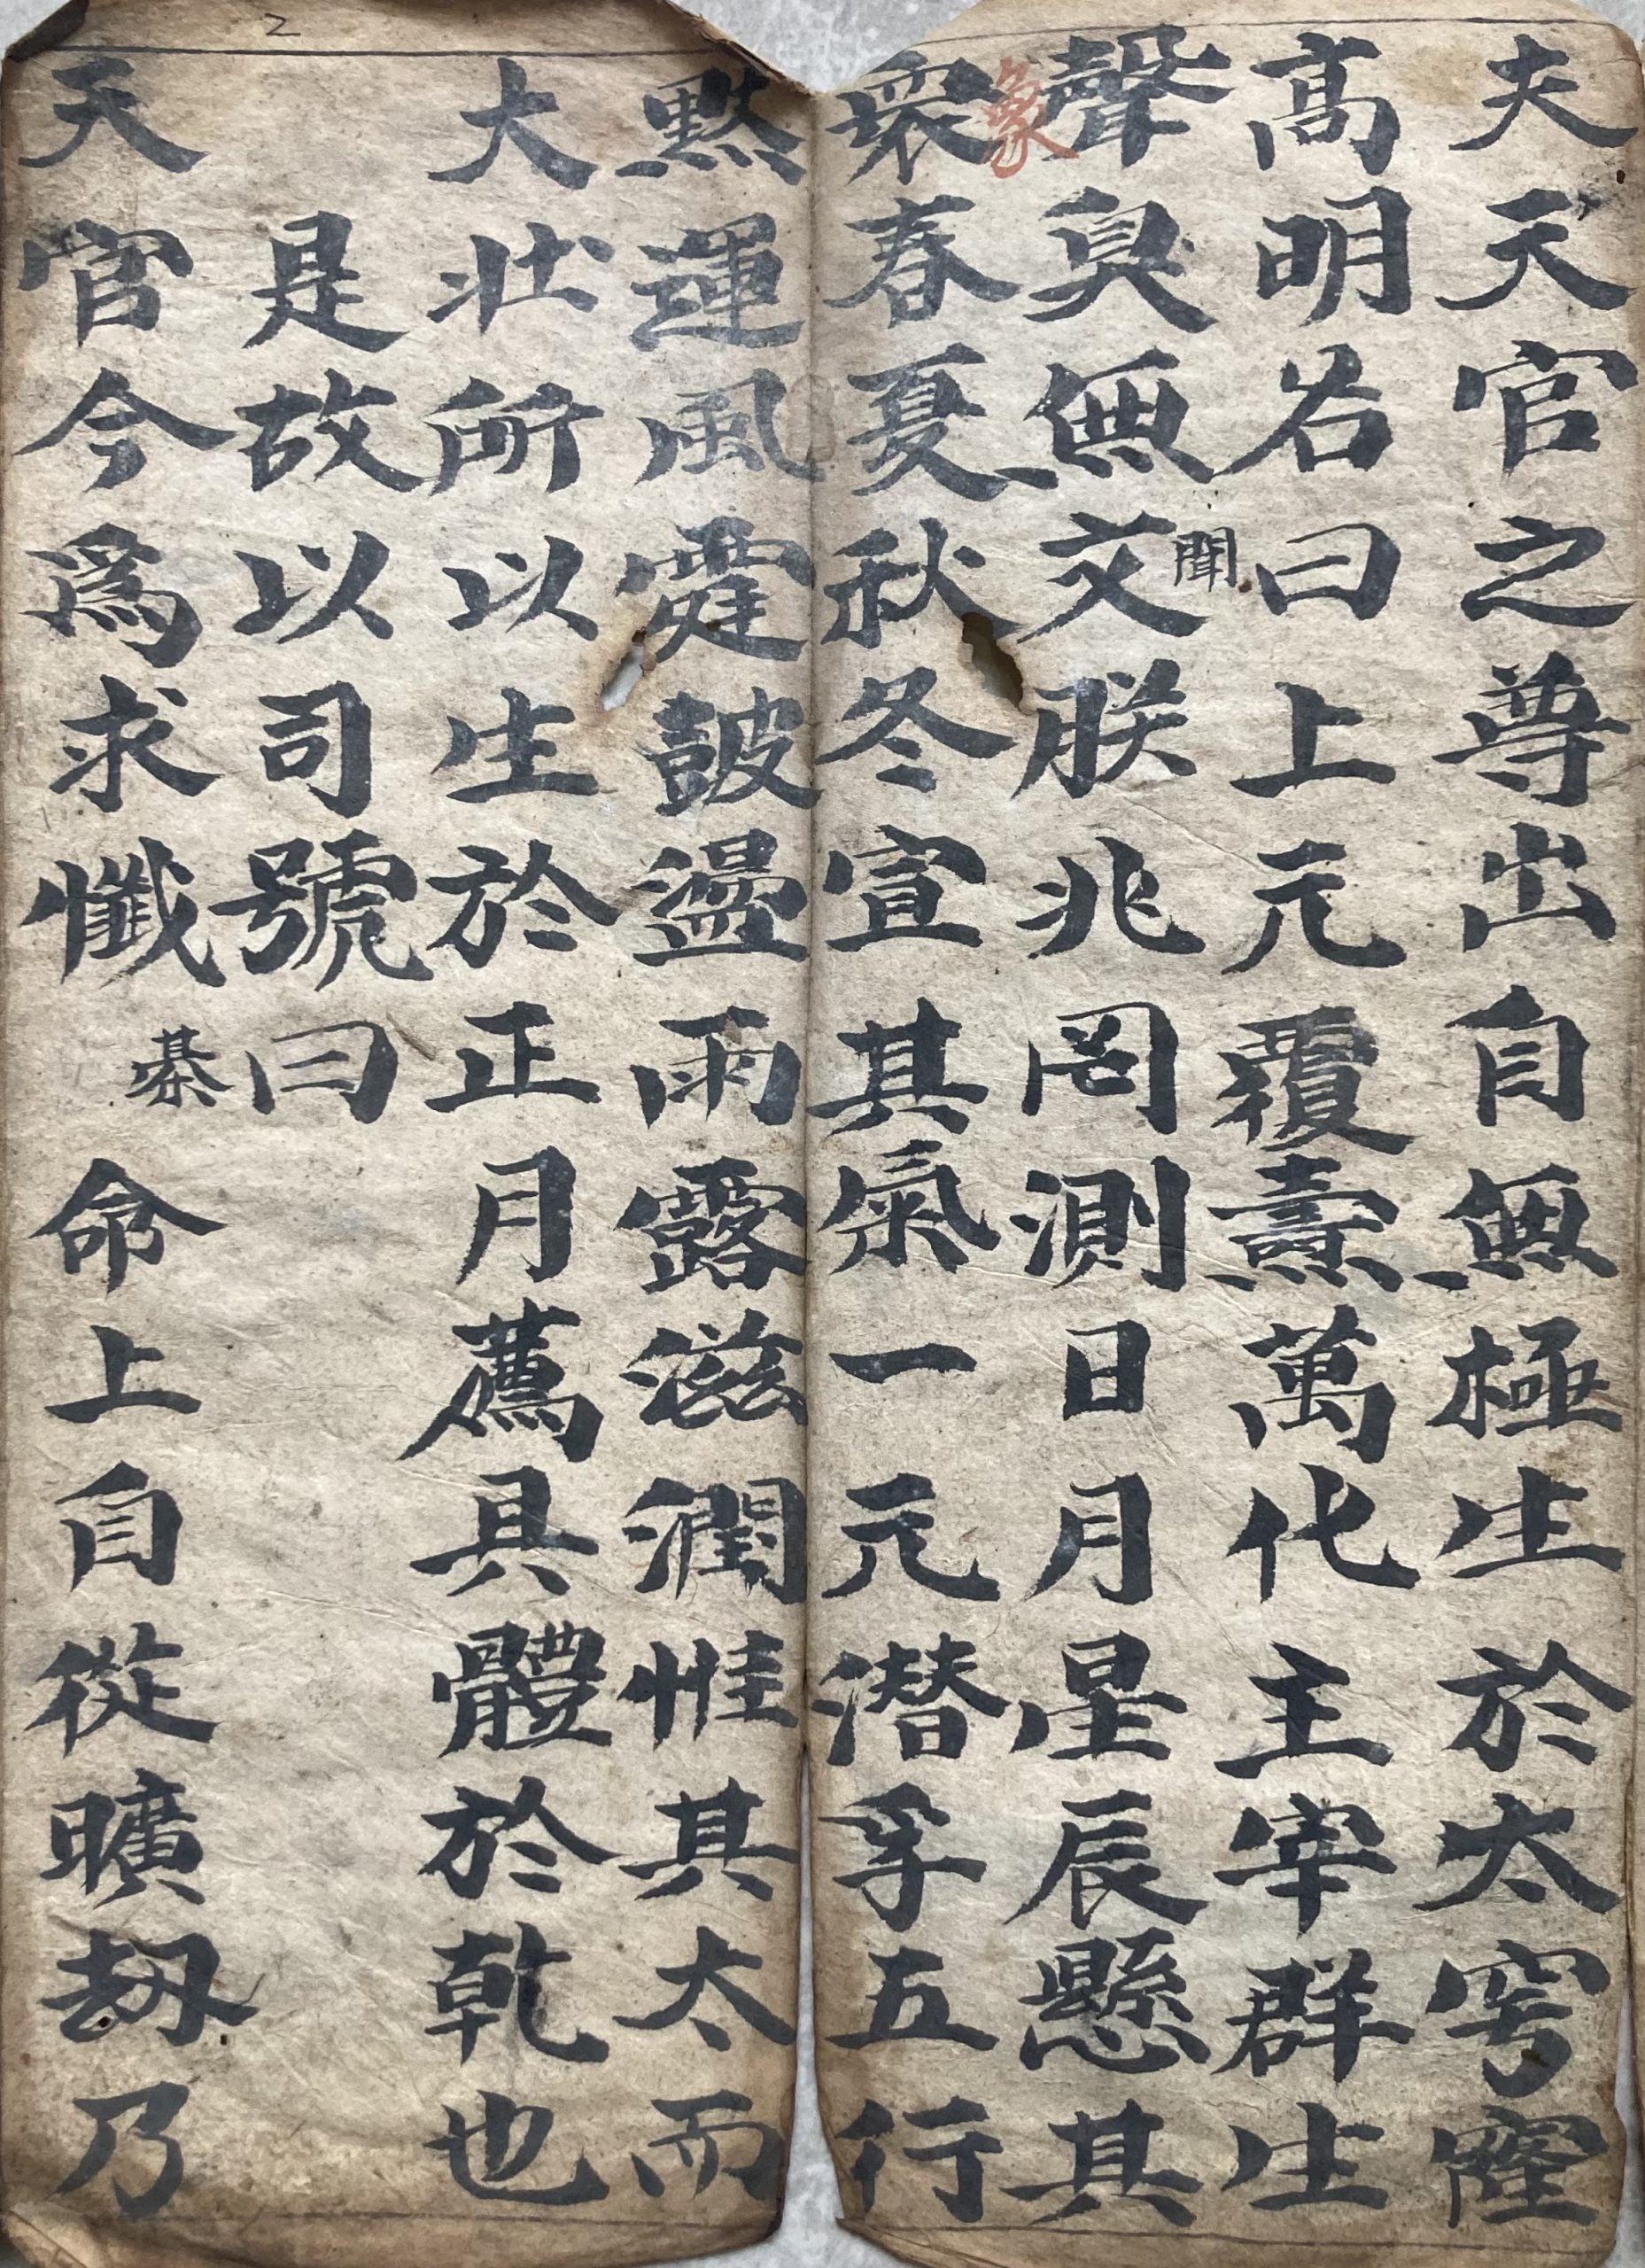 夫天官之尊出自無極生於太穹窿
高明名曰上元覆燾萬代主宰群生
聲臭無文聞朕兆罔測日月星辰懸其
象
衆春夏秋冬宣其氣一元潛孚五行
黙運風霆皷盪雨露滋潤惟其太而
大壯所以生於正月薦具體於乾也
是故以司號曰
天官今爲求懺
綦
命上自從曠劫乃
2